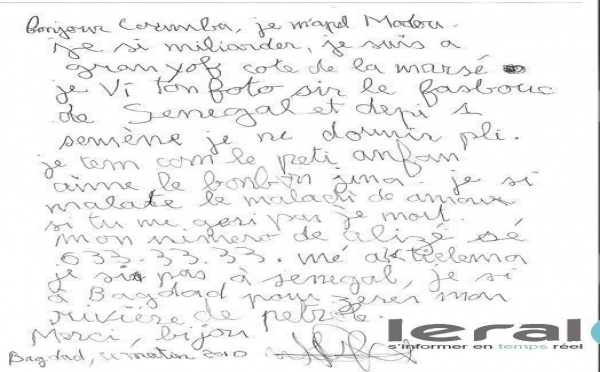 Bonjour Coumba, je m'apel Madou.
je si miliarder, je suis a
granyof cote de la marsé
je vi ton foto sir le fasbouc
de Senegal et depi 1
semène je ne dormir pli.
je tem com le peti anfan
aime le bonbon je si
malade le maladi de amour
si tu me geri pas je mort.
mon nimero de alizé sé
633.33.33. mé aktielema
je si pas à senegal, je si
à Bagdad pour gerer mon
rivière de petrole.
Merci, bijou
Bagdad, 2010
leral
s'informer en temps réel